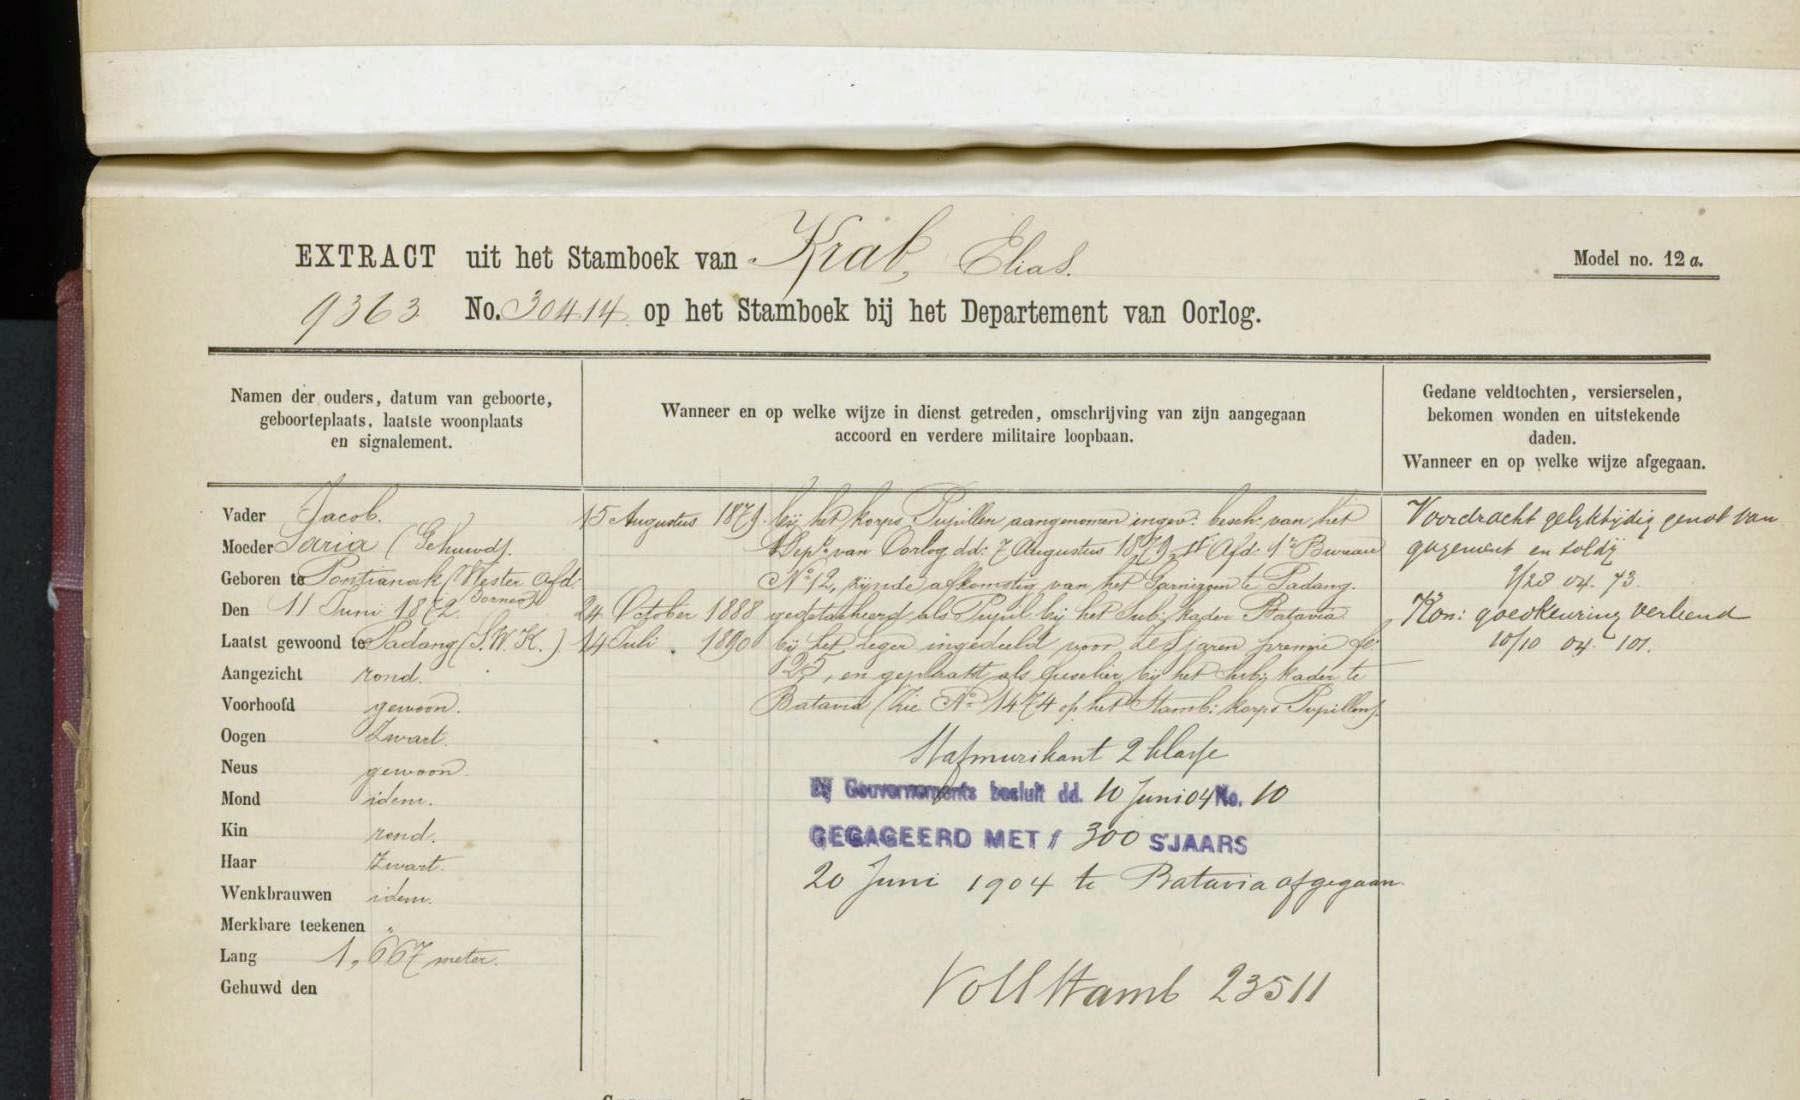 EXTRACT uit het Stamboek van Krab, Elias.
Model no. 12 a.
9363 No. 30414 op het Stamboek bij het Departement van Oorlog.
Namen der ouders, datum van geboorte,
geboorteplaats, laatste woonplaats
en signalement.
Wanneer en op welke wijze in dienst getreden, omschrijving van zijn aangegaan
accoord en verdere militaire loopbaan.
Gedane veldtochten, versierselen,
bekomen wonden en uitstekende
daden.
Wanneer en op welke wijze afgegaan.
Vader Jacob.
Moeder Saria (Gehuwd).
Geboren te Pontianak (Wester Afd:
Borneo)
Den 11 Juni 1872.
Laatst gewoond te Padang (S.W.K.)
Aangezicht rond.
Voorhoofd gewoon.
Oogen Zwart.
Neus gewoon.
Mond idem.
Kin rond.
Haar Zwart.
Wenkbrauwen idem.
Merkbare teekenen "
Lang 1,667 meter.
Gehuwd den
15 Augustus 1879. bij het korps Pupillen aangenomen ingev: besch: van het
Dep.t van Oorlog dd: 7 Augustus 1879, Afd: 1e Bureau
No 12, zijnde afkomstig van het Garnizoen te Padang.
24 October 1888 gedetacheerd als Pupil bij het Sub: kader Batavia
14 Juli " 1890 bij het leger ingedeeld voor zes jaren premie
en geplaatst als fuselier bij het Sub: kader te
Batavia (Zie No 1474 op het Stamb: korps Pupillen).
Stafmuzikant 2 klasse
Bij Gouvernements besluit dd. 10 Juni 04 No. 10
GEGAGEERD MET f 300 S'JAARS
20 Juni 1904 te Batavia afgegaan.
Voll Stamb 23511
Voordracht gelyktijdig genot van
gagement en soldij
7/28 04. 73.
Kon: goedkeuring verleend
10/10 04. 101.